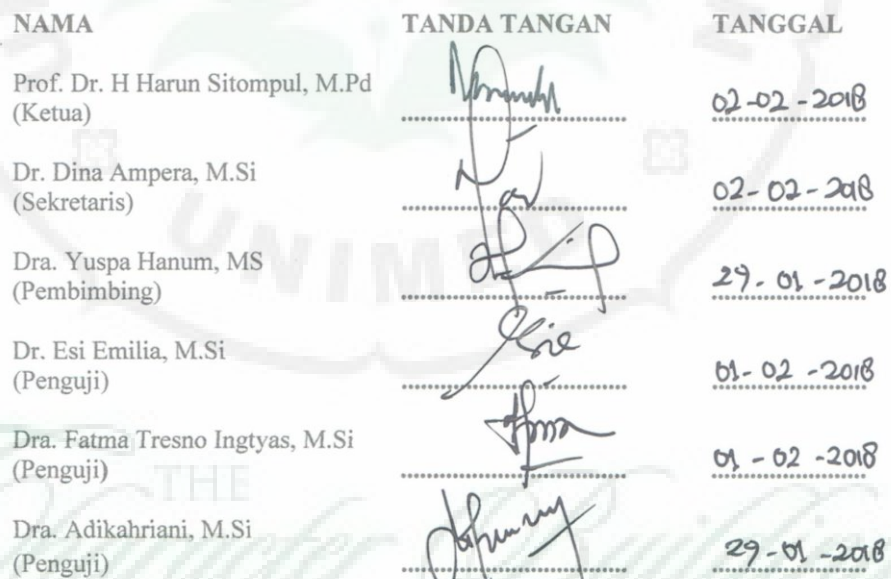 NAMA TANDA TANGAN TANGGAL
Prof. Dr. H Harun Sitompul, M.Pd
(Ketua) 02-02-2018
Dr. Dina Ampera, M.Si
(Sekretaris) 02-02-2018
UNIMED
Dra. Yuspa Hanum, MS
(Pembimbing) 29-01-2018
Dr. Esi Emilia, M.Si
(Penguji) 01-02-2018
Dra. Fatma Tresno Ingtyas, M.Si
(Penguji) 01-02-2018
THE
Character Building
Dra. Adikahriani, M.Si
(Penguji) 29-01-2018